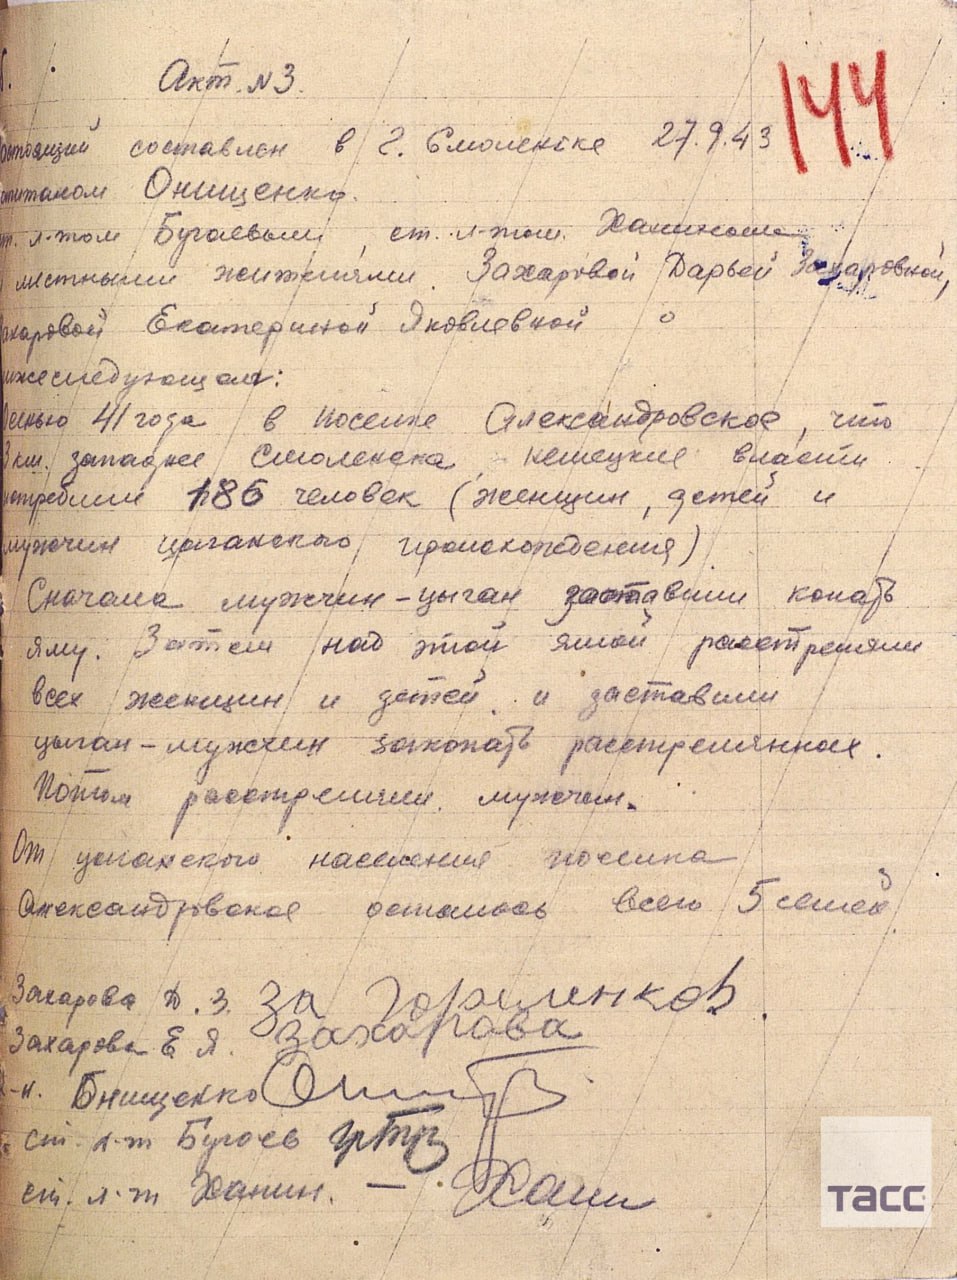 Акт. №3.
144
составлен в г. Смоленске 27.9.43
Онищенко.
ст. л-том Бугаевым, ст. л-том. Ханиным
местными жителями. Захаровой Дарьей Захаровной,
Захаровой Екатериной Яковлевной о
нижеследующем:
Осенью 41 года в поселке Александровское, что
3 км. западнее Смоленска, немецкие власти
истребили 186 человек (женщин, детей и
мужчин цыганского происхождения)
Сначала мужчин-цыган заставили копать
яму. Затем над этой ямой расстреляли
всех женщин и детей, и заставили
цыган-мужчин закопать расстрелянных.
Потом расстреляли мужчин.
От цыганского населения поселка
Александровское осталось всего 5 семей.
Захарова Д. З. За
Захарова Е Я. Захарова
к-н. Онищенко
ст. л-т Бугаев
ст. л-т Ханин. — Ханин
ТАСС